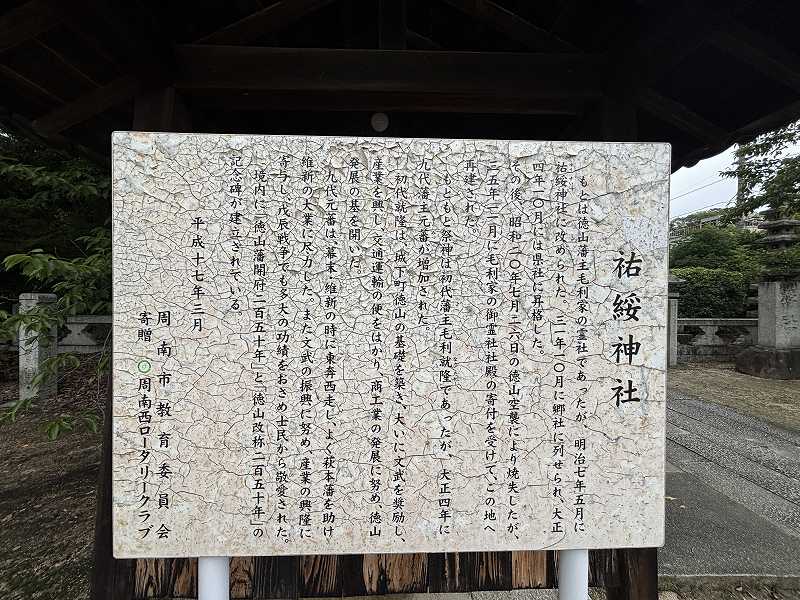 祐綏神社
もとは徳山藩主毛利家の霊社であったが、明治七年五月に
祐綏神社に改められた。三一年一〇月に郷社に列せられ、大正
四年一〇月には県社に昇格した。
その後、昭和二〇年七月二六日の徳山空襲により焼失したが、
三五年一二月に毛利家の御霊社社殿の寄付を受けて、この地へ
再建された。
もともと祭神は初代藩主毛利就隆であったが、大正四年に
九代藩主元蕃が増加された。
初代就隆は、城下町徳山の基礎を築き、大いに文武を奨励し、
産業を興し、交通運輸の便をはかり、商工業の発展に努め、徳山
発展の基を開いた。
九代元蕃は、幕末・維新の時に東奔西走し、よく萩本藩を助け
維新の大業に尽力した。また文武の振興に努め、産業の興隆に
寄与し、戊辰戦争でも多大の功績をおさめ士民から敬愛された。
境内に「徳山藩開府二百五十年」と「徳山改称二百五十年」の
記念碑が建立されている。
平成十七年三月
周南市教育委員会
寄贈 周南西ロータリークラブ